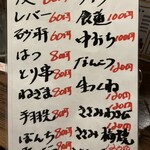 レバー 60円
砂肝 60円
はつ 80円
とり串 80円
ねぎま 80円
手羽先 80円
ぼんち 80円
100円
中おち 100円
なんこつ 120円
生つくね 120円
ささみ 120円
ささみ梅焼 120円